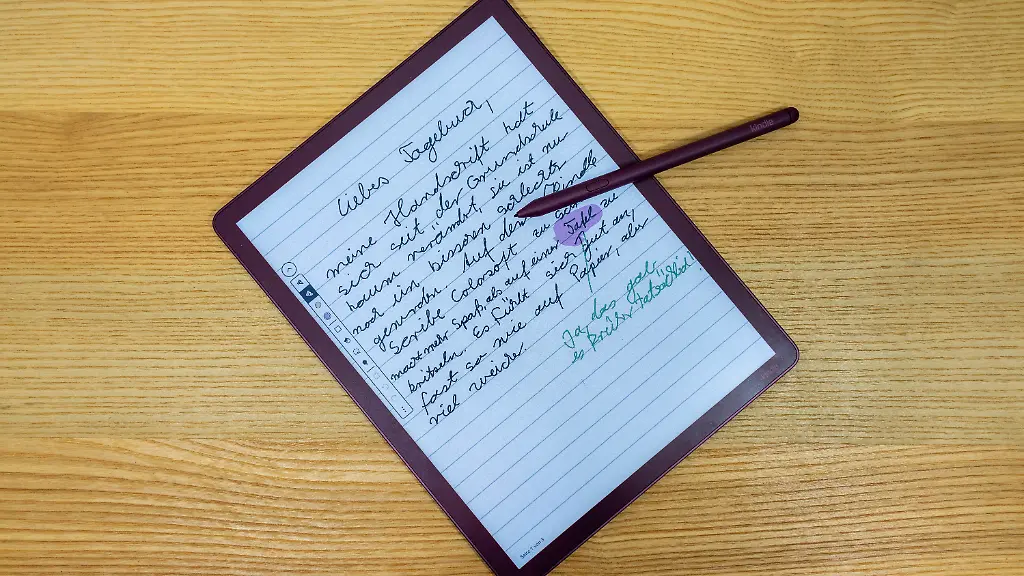 Liebes Tagebuch,
meine Handschrift hat
sich seit der Grundschule
kaum verändert, sie ist nur
noch ein bisschen schlechter
geworden. Auf dem Kindle
Scribe Colosoft zu
macht mehr Spaß als auf einer Tafel zu
kritzeln. Es fühlt sich gut an,
fast so wie auf Papier, aber
viel weicher.
Ja, das
es tatsächlich
kindle